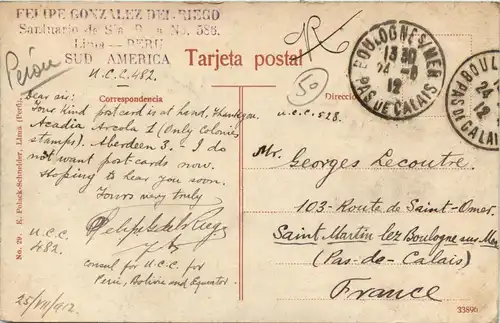 FELIPE GONZALEZ DEL RIEGO
Santuario de Sta. Rosa No. 586.
Lima - PERU
SUD AMERICA
U.C.C. 482.
Perou
Tarjeta postal
50
BOULOGNE S/MER
13 30
24 - 8
12
PAS DE CALAIS
BOULOGNE
24
12
PAS DE CALAIS
Correspondencia
Direcc
U.C.C. 528.
Dear sir:
Your kind post card is at hand, thank you.
Acadia Arcola 2 (Only Colonies
stamps). Aberdeen 3. - I do
not want post cards now.
Hoping to hear you soon.
Yours very truly
Felipe G. del Riego
U.C.C.
482.
Consul for U.C.C. for
Perú, Bolivia and Equator.
25/VII/912.
Mr. Georges Lecoutre.
103 - Route de Saint-Omer.
Saint Martin lez Boulogne sur Mer
(Pas-de-Calais)
France
No. 29 E. Polack-Schneider, Lima (Perú).
33896